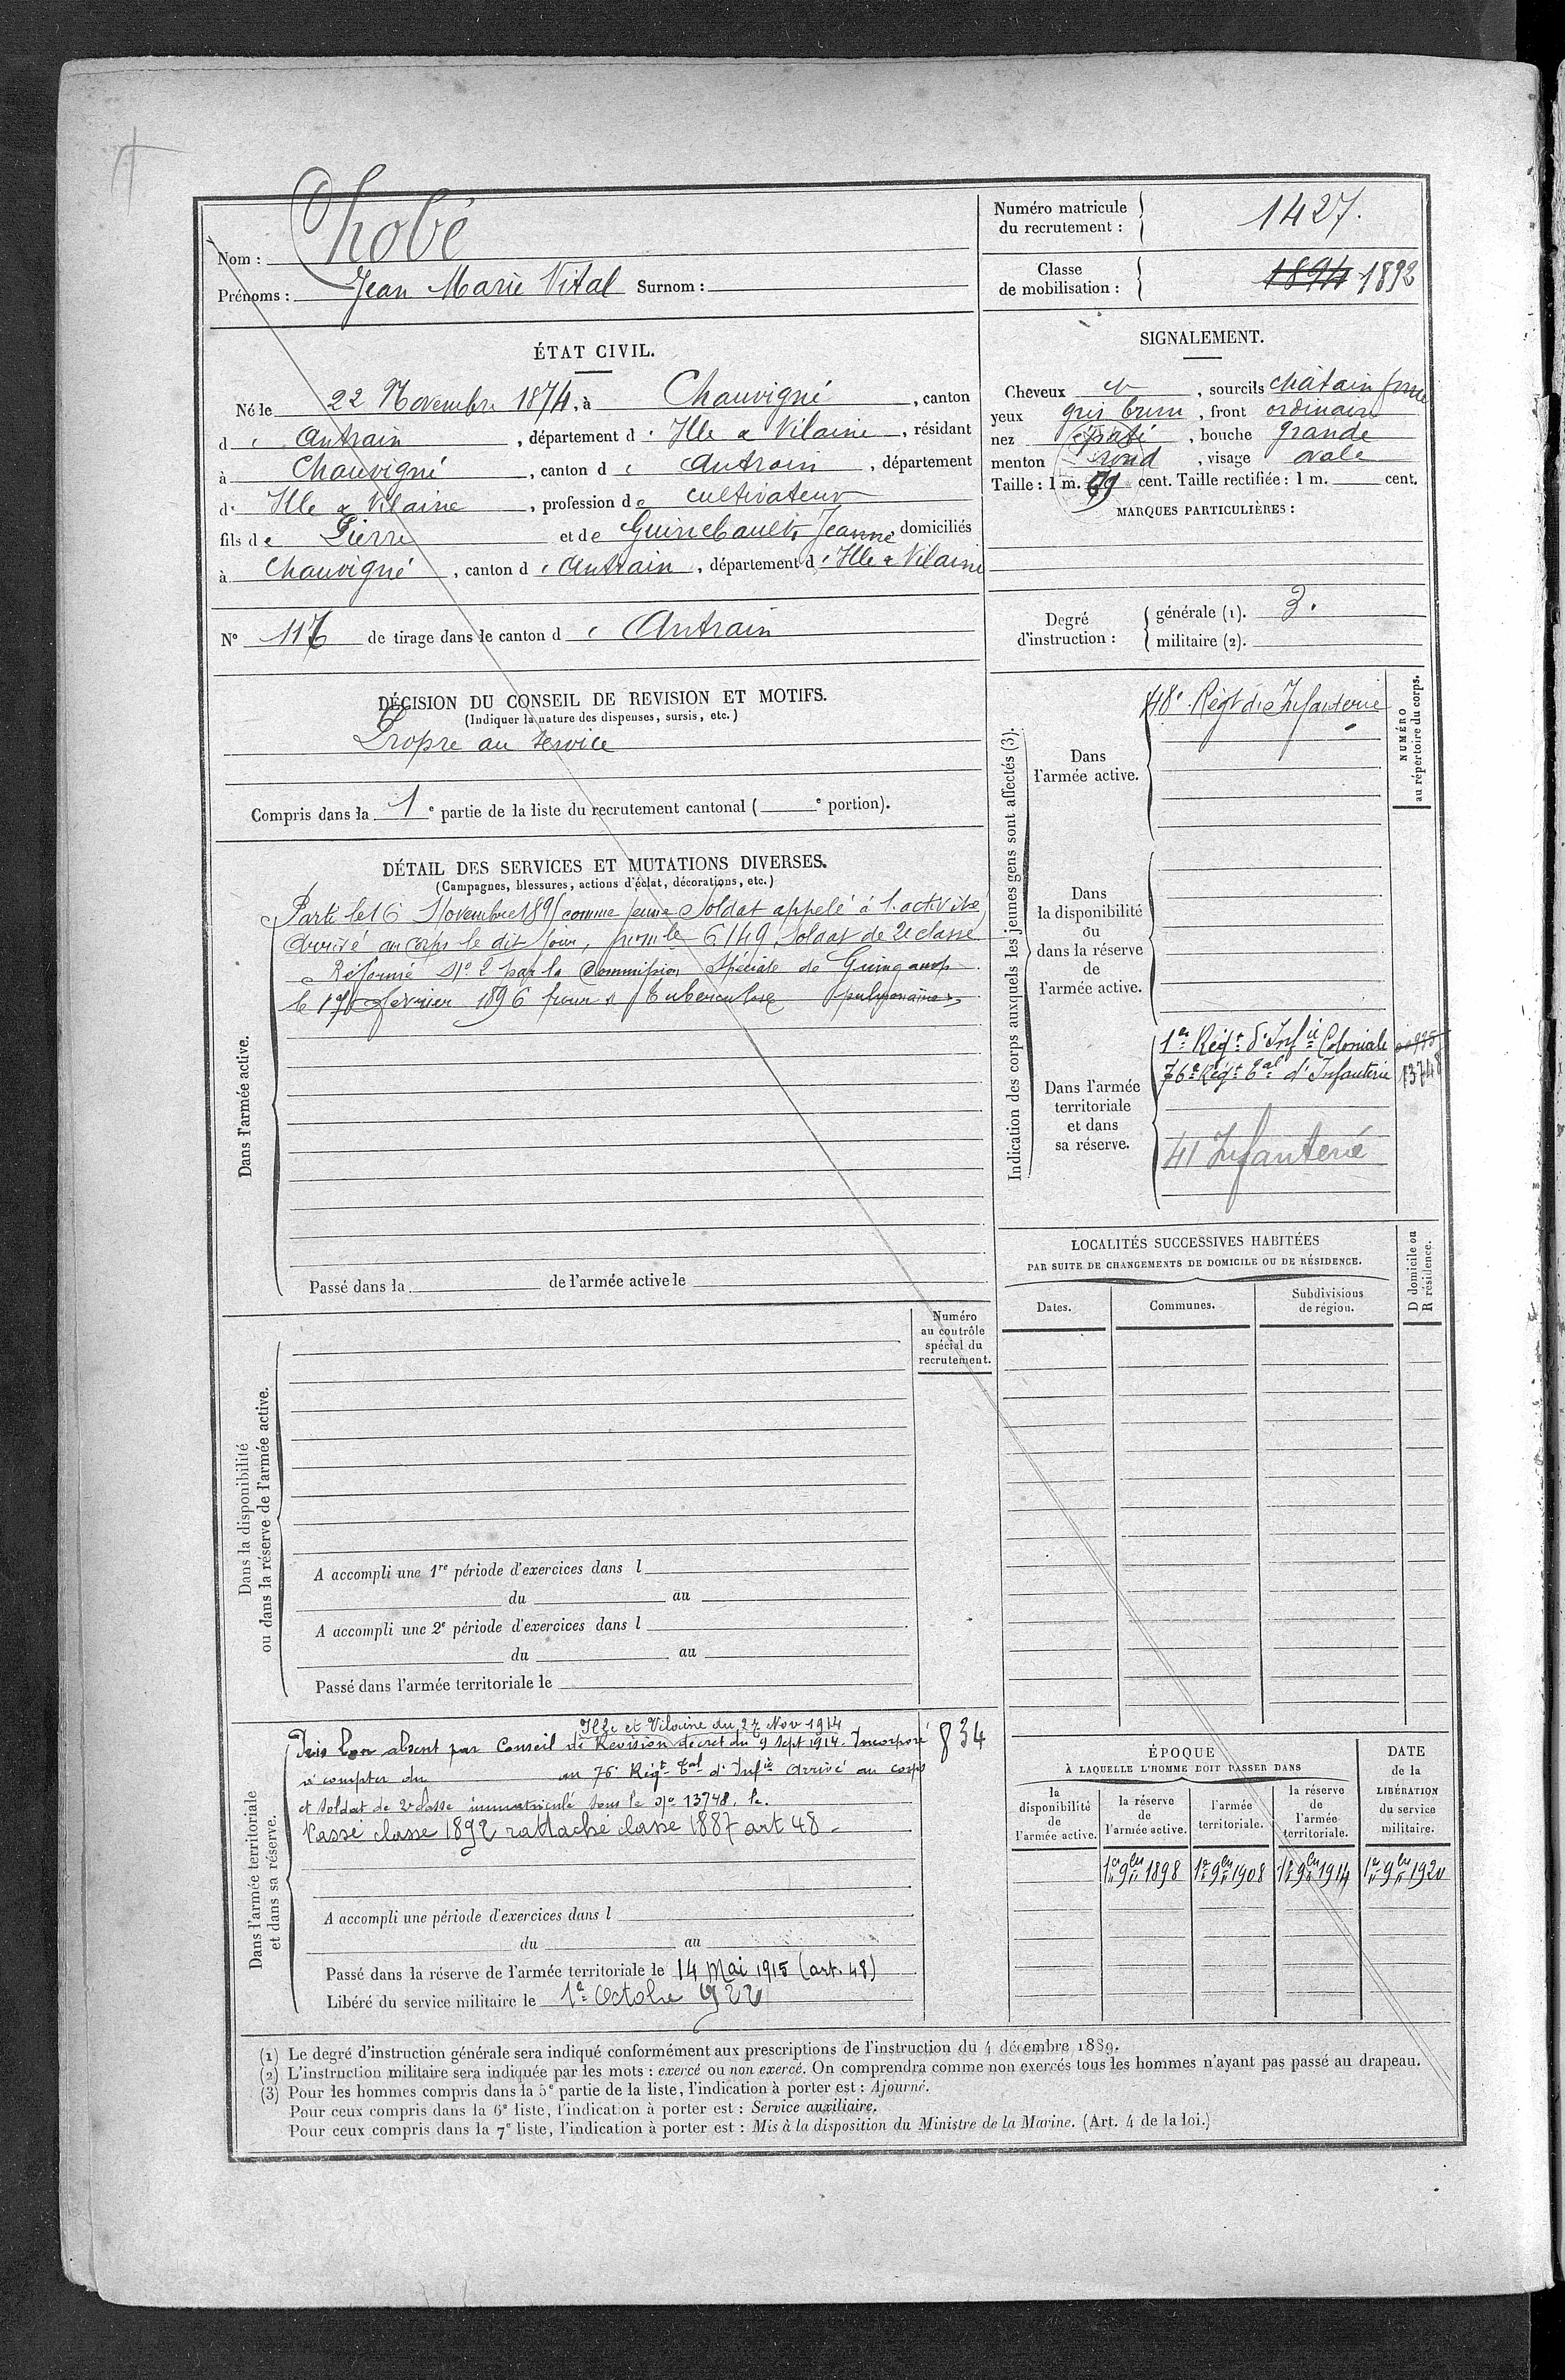 Nom : Chobé
Prénoms : Jean Marie Vital Surnom :
Numéro matricule du recrutement : 1427.
Classe de mobilisation : 1894 1892
ÉTAT CIVIL.
Né le 22 Novembre 1874, à Chauvigné, canton
d' Antrain, département d' Ille & Vilaine, résidant
à Chauvigné, canton d' Antrain, département
d' Ille & Vilaine, profession de cultivateur
fils de Pierre et de Guinebault, Jeanne, domiciliés
à Chauvigné, canton d' Antrain, département d' Ille & Vilaine
N° 117 de tirage dans le canton d' Antrain
SIGNALEMENT.
Cheveux et, sourcils châtain foncé
yeux gris brun, front ordinaire
nez épaté, bouche grande
menton rond, visage ovale
Taille : 1 m. 69 cent. Taille rectifiée : 1 m. cent.
MARQUES PARTICULIÈRES :
Degré d'instruction : générale (1). 3.
militaire (2).
DÉCISION DU CONSEIL DE REVISION ET MOTIFS.
(Indiquer la nature des dispenses, sursis, etc.)
Propre au service
Compris dans la 1e partie de la liste du recrutement cantonal ( e portion).
DÉTAIL DES SERVICES ET MUTATIONS DIVERSES.
(Campagnes, blessures, actions d'éclat, décorations, etc.)
Dans l'armée active.
Parti le 16 Novembre 1895 comme jeune soldat appelé à l'activité
Arrivé au corps le dit jour, num le 6149, soldat de 2e classe
Réformé N° 2 par la Commission Spéciale de Guingamp
le 17 février 1896 pour tuberculose pulmonaire
Passé dans la de l'armée active le
Indication des corps auxquels les jeunes gens sont affectés (3).
NUMÉRO au répertoire du corps.
Dans l'armée active.
48e Régt d'Infanterie
Dans la disponibilité ou dans la réserve de l'armée active.
Dans l'armée territoriale et dans sa réserve.
1er Régt d'Infie Coloniale
76e Régt Tal d'Infanterie 13748
41 Infanterie
LOCALITÉS SUCCESSIVES HABITÉES
PAR SUITE DE CHANGEMENTS DE DOMICILE OU DE RÉSIDENCE.
Dates. Communes. Subdivisions de région. D domicile ou R résidence.
Numéro au contrôle spécial du recrutement.
Dans la disponibilité ou dans la réserve de l'armée active.
A accompli une 1re période d'exercices dans l
du au
A accompli une 2e période d'exercices dans l
du au
Passé dans l'armée territoriale le
Dans l'armée territoriale et dans sa réserve.
Ille et Vilaine du 27 Nov 1914
Pris bon absent par Conseil de Revision décret du 9 Sept 1914. Incorporé 834
à compter du au 76e Régt Tal d'Infie Arrivé au corps
et soldat de 2e classe immatriculé sous le No 13748, le.
Passé classe 1892 rattaché classe 1887 art 48 -
A accompli une période d'exercices dans l
du au
Passé dans la réserve de l'armée territoriale le 14 Mai 1915 (art. 48)
Libéré du service militaire le 1er Octobre 1922
ÉPOQUE
À LAQUELLE L'HOMME DOIT PASSER DANS
la disponibilité de l'armée active.
la réserve de l'armée active.
l'armée territoriale.
la réserve de l'armée territoriale.
DATE de la LIBÉRATION du service militaire.
1er 9bre 1898 1er 9bre 1908 1er 9bre 1914 1er 9bre 1920
(1) Le degré d'instruction générale sera indiqué conformément aux prescriptions de l'instruction du 4 décembre 1889.
(2) L'instruction militaire sera indiquée par les mots : exercé ou non exercé. On comprendra comme non exercés tous les hommes n'ayant pas passé au drapeau.
(3) Pour les hommes compris dans la 5e partie de la liste, l'indication à porter est : Ajourné.
Pour ceux compris dans la 6e liste, l'indication à porter est : Service auxiliaire.
Pour ceux compris dans la 7e liste, l'indication à porter est : Mis à la disposition du Ministre de la Marine. (Art. 4 de la loi.)